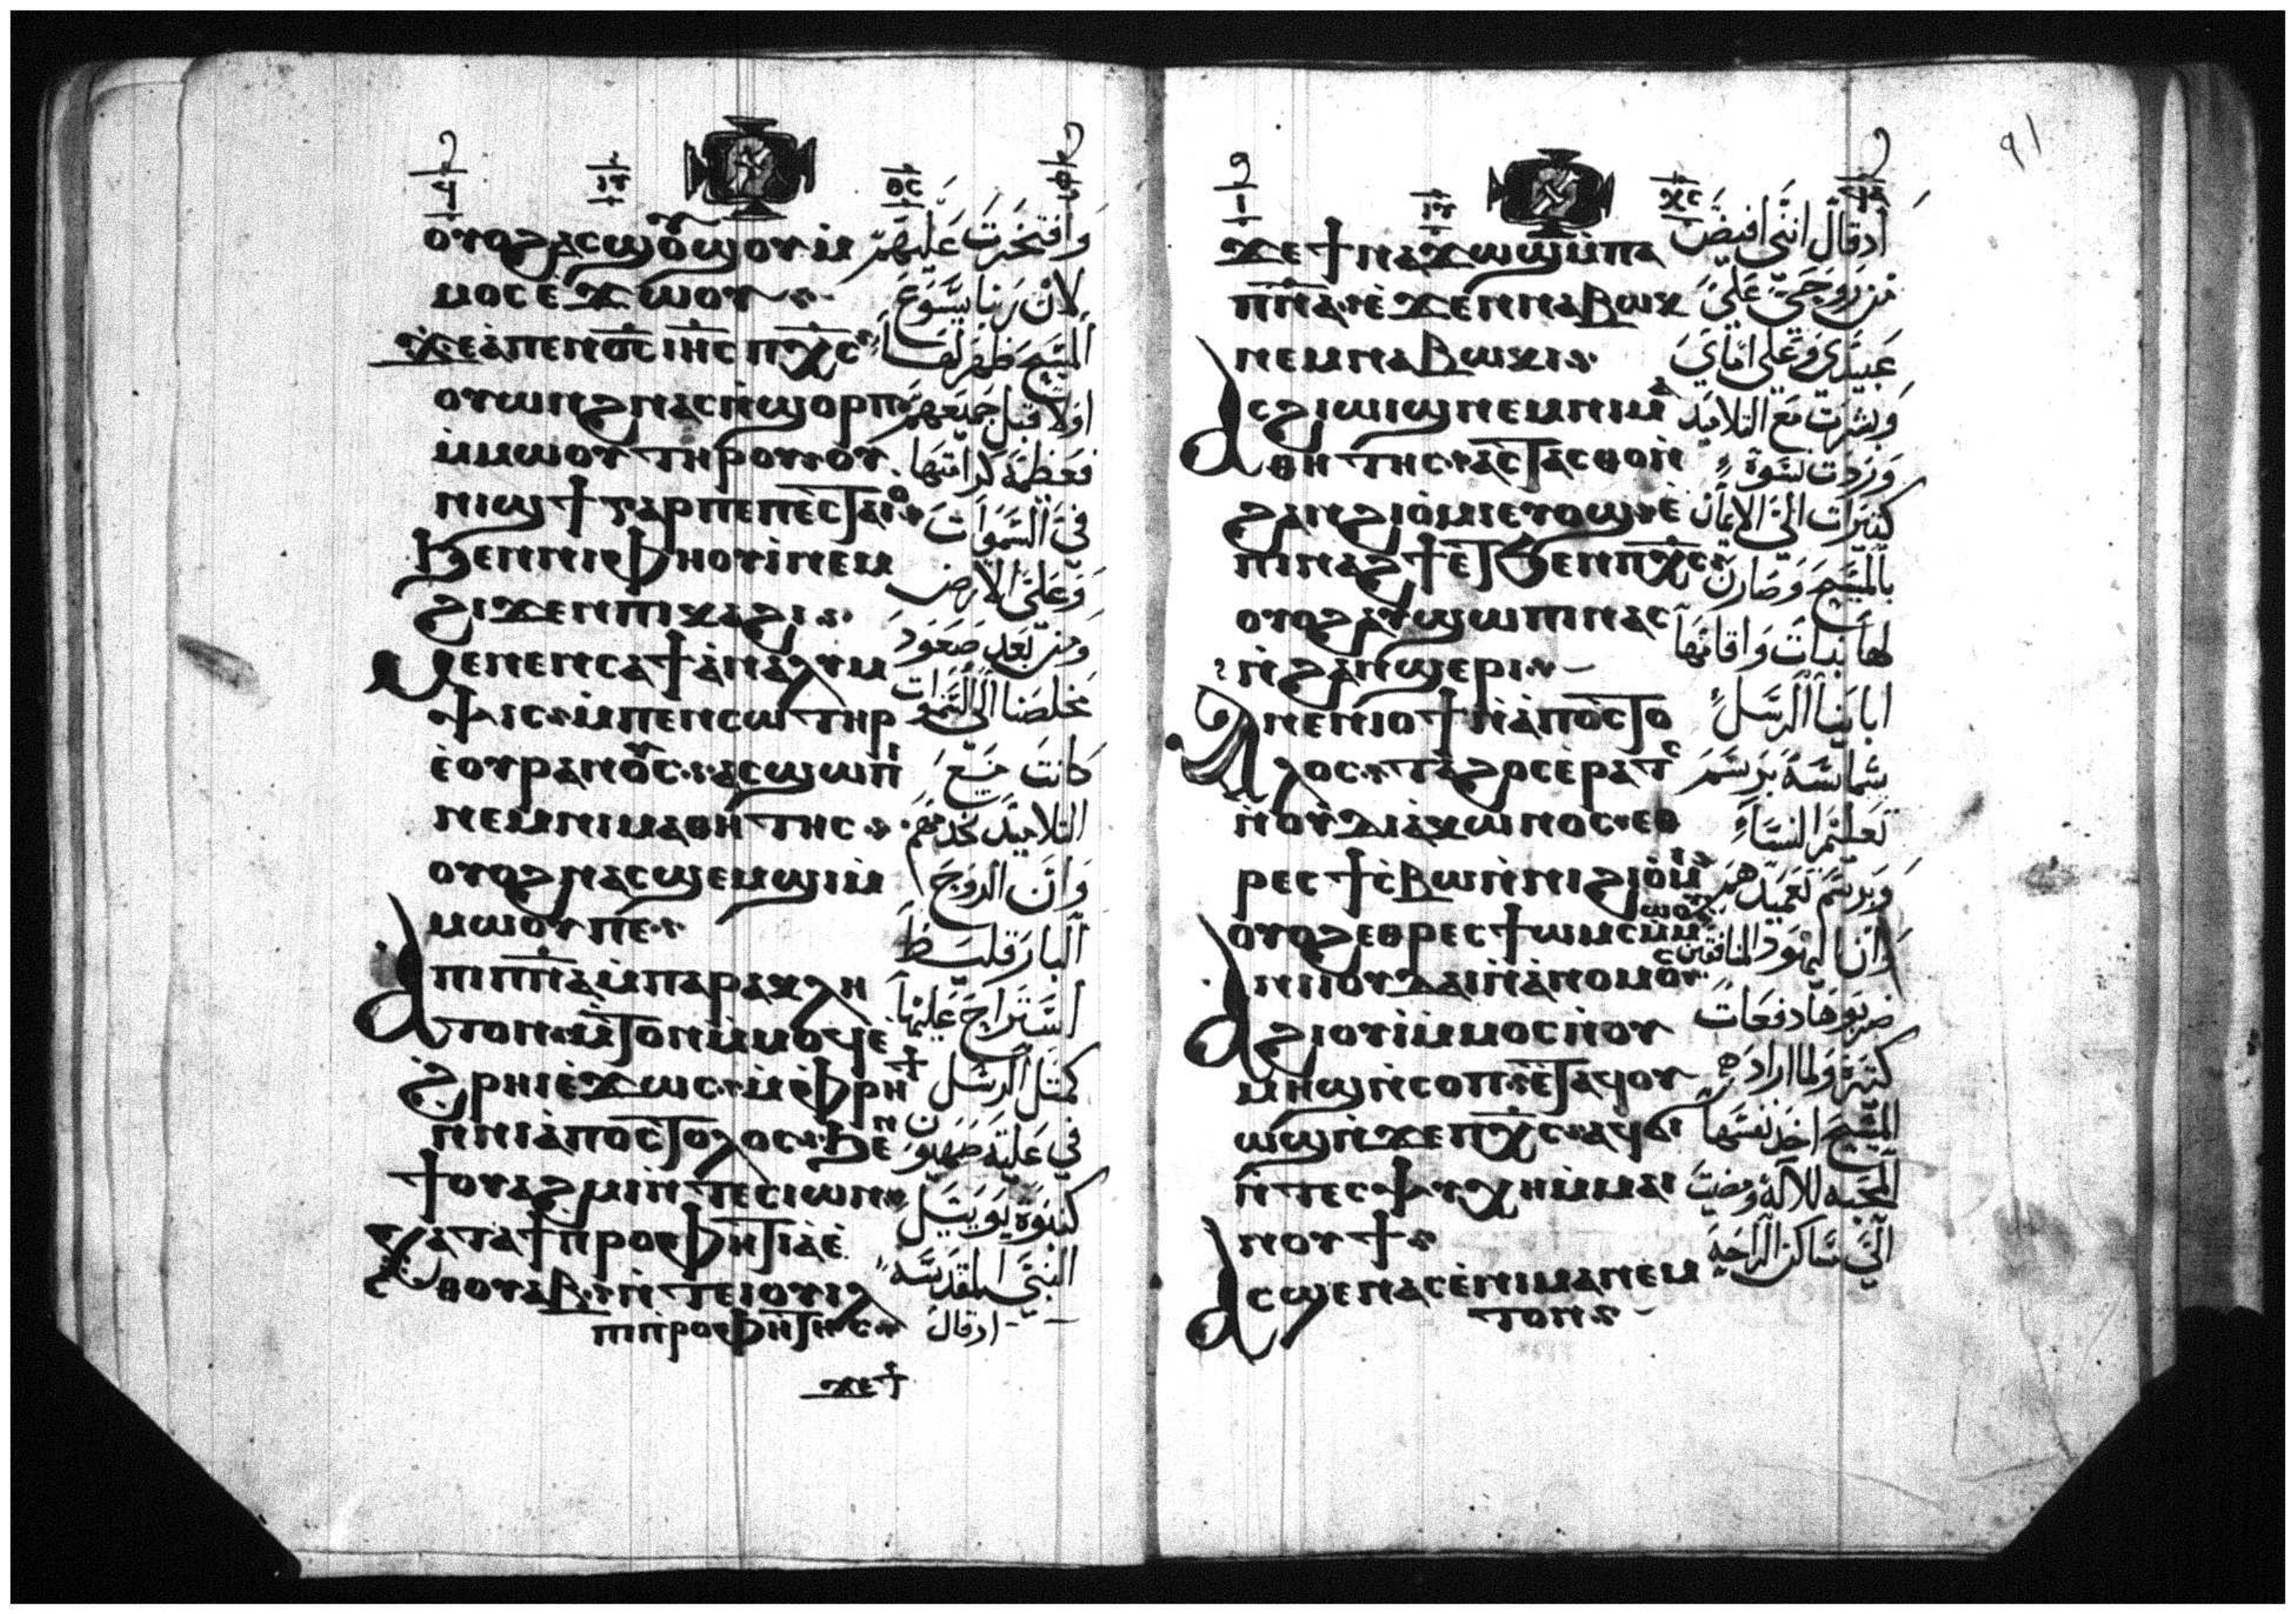 ⲟⲩⲟϩⲁⲥϣⲟⲩϣⲟⲩⲙ̀
ⲙⲟⲥⲉϫⲱⲟⲩ
ϫⲉⲁ̀ⲡⲉⲛⲟ̅ⲥ̅ⲓⲏ̅ⲥ̅ⲡⲭ̅ⲥ̅
ⲟⲩⲱⲛϩⲛⲁⲥⲛ̀ϣⲟⲣⲡ
ⲙ̀ⲙⲱⲟⲩⲧⲏⲣⲟⲩⲟⲩ
ⲛⲓϣϯⲅⲁⲣⲡⲉⲡⲉⲥⲧⲁⲓⲟ
ϧⲉⲛⲛⲓⲫⲏⲟⲩⲓ̀ⲛⲉⲙ
ϩⲓϫⲉⲛⲡⲓⲕⲁϩⲓ
ⲙⲉⲛⲉⲛⲥⲁϯⲁ̀ⲛⲁⲗⲩⲙ
ⲯⲓⲥⲙ̀ⲡⲉⲛⲥⲱⲧⲏⲣ
ⲉ̀ⲟⲩⲣⲁⲛⲟⲥⲁⲥϣⲱⲡⲓ
ⲛⲉⲙⲛⲓⲙⲁⲑⲏⲧⲏⲥ
ⲟⲩⲟϩⲛⲁⲥϣⲉⲙϣⲓⲙ̀
ⲙⲱⲟⲩⲡⲉ
ⲁⲡⲓⲡⲛ̅ⲁ̅ⲙ̀ⲡⲁⲣⲁⲕⲗⲏ
ⲧⲟⲛⲙ̀ⲧⲟⲛⲙ̀ⲙⲟϥⲉ̀
ϩⲣⲏⲓⲉ̀ϫⲱⲥⲙ̀ⲫⲣⲏϯ
ⲛⲛⲓⲁ̀ⲡⲟⲥⲧⲟⲗⲟⲥϧⲉⲛ
ϯⲟⲩⲁϩⲙⲓⲛ̀ⲧⲉⲥⲓⲱⲛ
ⲕⲁⲧⲁϯⲡ̀ⲣⲟⲫⲏⲧⲓⲁⲉ̀
ⲑⲟⲩⲁⲃⲛ̀ⲧⲉⲓⲟⲩⲓⲗ
ⲡⲓⲡ̀ⲣⲟⲫⲏⲧⲏⲥ
ϫⲉϯ
وافتخرت عليهم
لان ربنا يسوع
المسيح ظهر لها
اولا قبل جميعهم
فعظمة كرامتها
في السموات
وعلي الارض
ومن بعد صعود
مخلصنا الي السموات
كانت مع
التلاميذ تخدمهم
وان الروح
البارقليط
استراح عليها
كمثل الرسل
في علية صهيون
كنبوة يوييل
النبي المقدسه
اذقال
ϫⲉϯⲛⲁϫⲱϣⲙ̀ⲡⲁ
ⲡⲛ̅ⲁ̅ⲉ̀ϫⲉⲛⲛⲁⲃⲱⲕ
ⲛⲉⲙⲛⲁⲃⲱⲕⲓ
ⲁⲥϩⲓⲱⲓϣⲛⲉⲙⲛⲓⲙⲁ
ⲑⲏⲧⲏⲥⲁⲥⲧⲁⲥⲑⲟⲛ̀
ϩⲁⲛϩⲓⲟ̀ⲙⲓⲉⲩⲟϣⲉ̀
ⲡⲓⲛⲁϩϯⲉⲧϧⲉⲛⲡⲭ̅ⲥ̅
ⲟⲩⲟϩⲁⲩϣⲱⲡⲓⲛⲁⲥ
ⲛ̀ϩⲁⲛϣⲉⲣⲓ
ⲁⲛⲉⲛⲓⲟϯⲛ̀ⲁ̀ⲡⲟⲥⲧⲟ
ⲗⲟⲥⲧⲁϩⲟⲥⲉ̀ⲣⲁⲧⲥ
ⲛ̀ⲟⲩⲇⲓⲁ̀ⲕⲱⲛⲟⲥⲉⲑ
ⲣⲉⲥϯⲥ̀ⲃⲱⲛ̀ⲛⲓϩⲓⲟ̀ⲙⲓ
ⲟⲩⲟϩⲉⲑⲣⲉⲥϯⲱⲙⲥⲙ̀ⲙⲱⲟⲩ
ⲁⲛⲓⲓⲟⲩⲇⲁⲓⲛ̀ⲁ̀ⲛⲟⲙⲟⲥ
ϩⲓⲟⲩⲓ̀ⲙ̀ⲙⲟⲥⲛ̀ⲟⲩ
ⲙⲏϣⲛ̀ⲥⲟⲡⲉ̀ⲧⲁϥⲟⲩ
ⲱϣⲛ̀ϫⲉⲡⲭ̅ⲥ̅ⲁϥϭⲓ
ⲛ̀ⲧⲉⲥⲯⲩⲭⲏⲙ̀ⲙⲁⲓ
ⲛⲟⲩϯ
ⲁⲥϣⲉⲛⲁⲥⲉ̀ⲛⲓⲙⲁⲛⲉⲙ
ⲧⲟⲛ
اذقال انني افيض
من روحي علي
عبيدي وعلي اماي
وبشرت مع التلاميذ
وردت نسوة
كثيرات الي الايمان
بالمسيح وصارت
لها بنات واقامتها
ابابنا الرسل
شماسة برسم
تعليم النساء
وبرسم تعميدهم
وان اليهود المنافقين
ضربوها دفعات
كثيرة ولما اراد
المسيح اخذ نفسها
المحبه للاله ومضت
الي مساكن الراحه
٩١